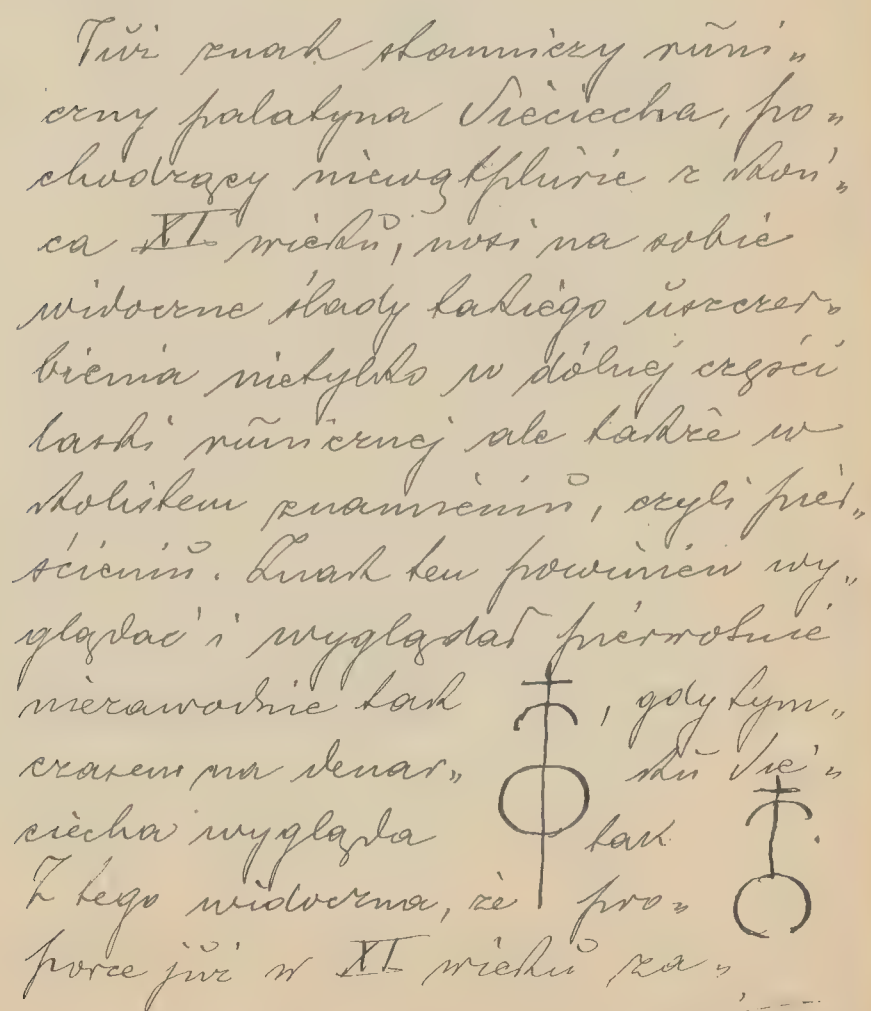 Już znak stanniczy runi„
czny palatyna Sieciecha, po„
chodzący niewątpliwie z koń„
ca XI wieku, nosi na sobie
widoczne ślady takiego uszczer„
bienia nietylko w dolnej części
laski runicznej ale także w
kolistem znamieniu, czyli pier„
ścieniu. Znak ten powinien wy„
glądać i wyglądał pierwotnie
niezawodnie tak , gdy tym„
czasem na denar„ ku Sie„
ciecha wygląda tak .
Z tego widoczna, że pro„
porce już w XI wieku za„